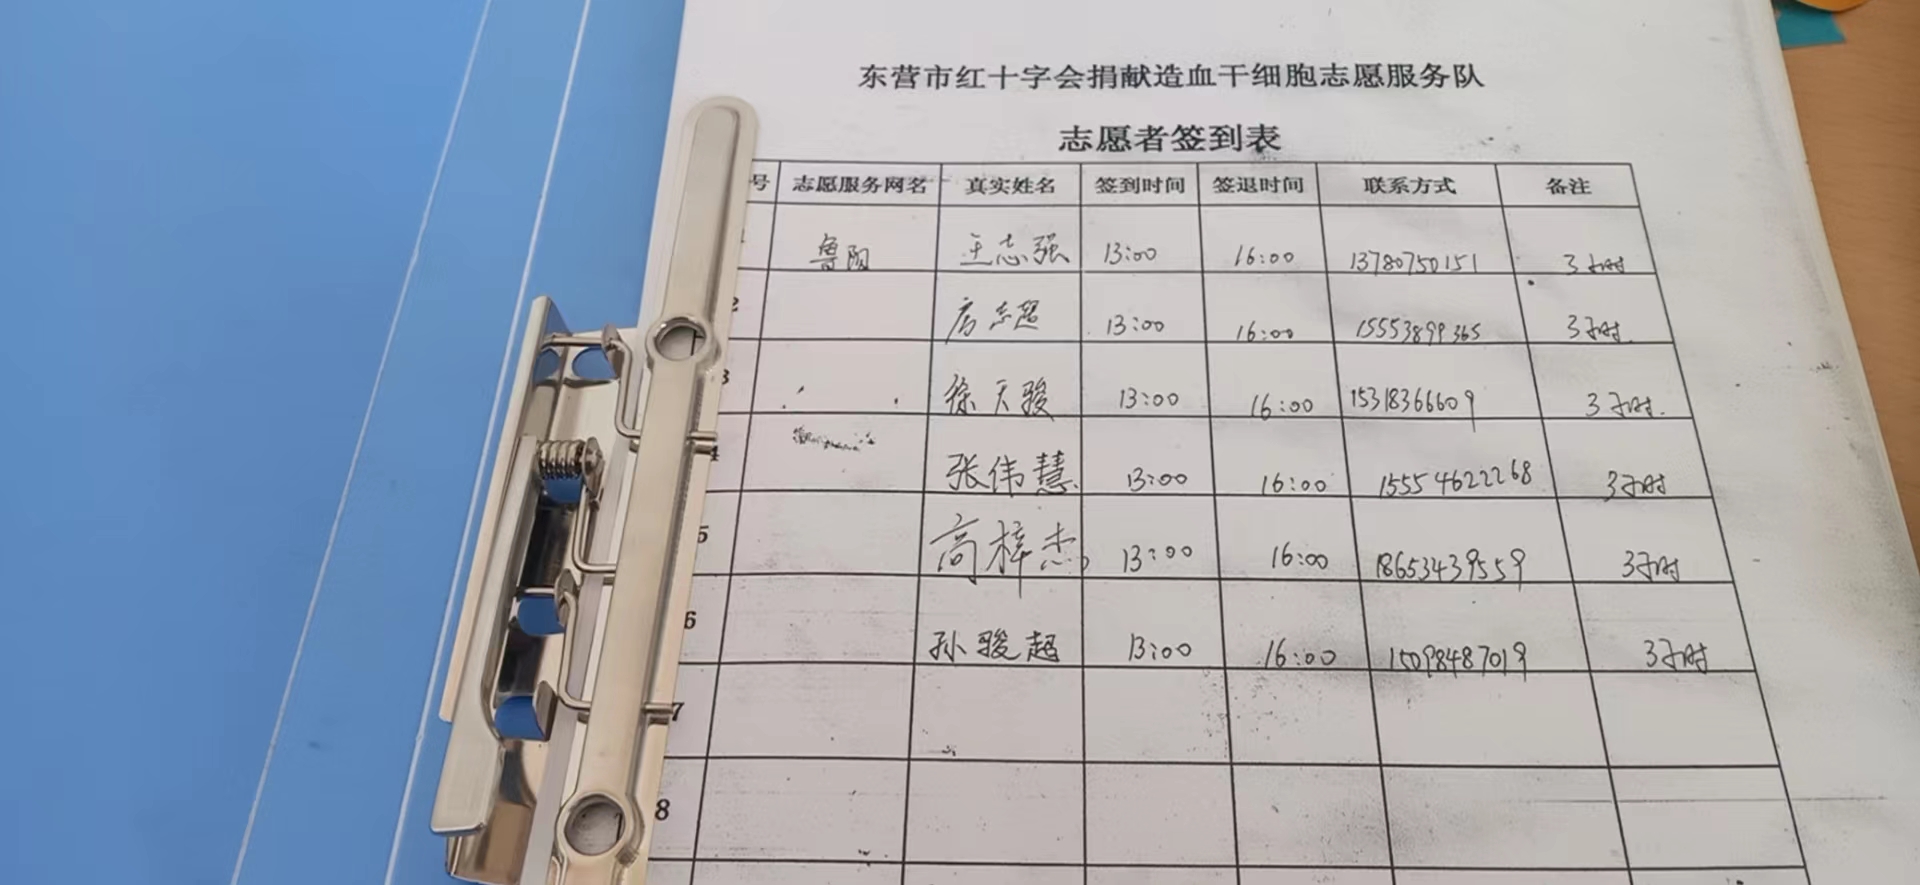 东营市红十字会捐献造血干细胞志愿服务队
志愿者签到表
号 志愿服务网名 真实姓名 签到时间 签退时间 联系方式 备注
1 鲁阳 王志强 13:00 16:00 13780750151 3小时
2 志超 13:00 16:00 15553899365 3小时
3 徐天骏 13:00 16:00 15318366609 3小时
4 张伟慧 13:00 16:00 15554622268 3小时
5 高梓杰 13:00 16:00 18653439559 3小时
6 孙骏超 13:00 16:00 15098487019 3小时
7
8